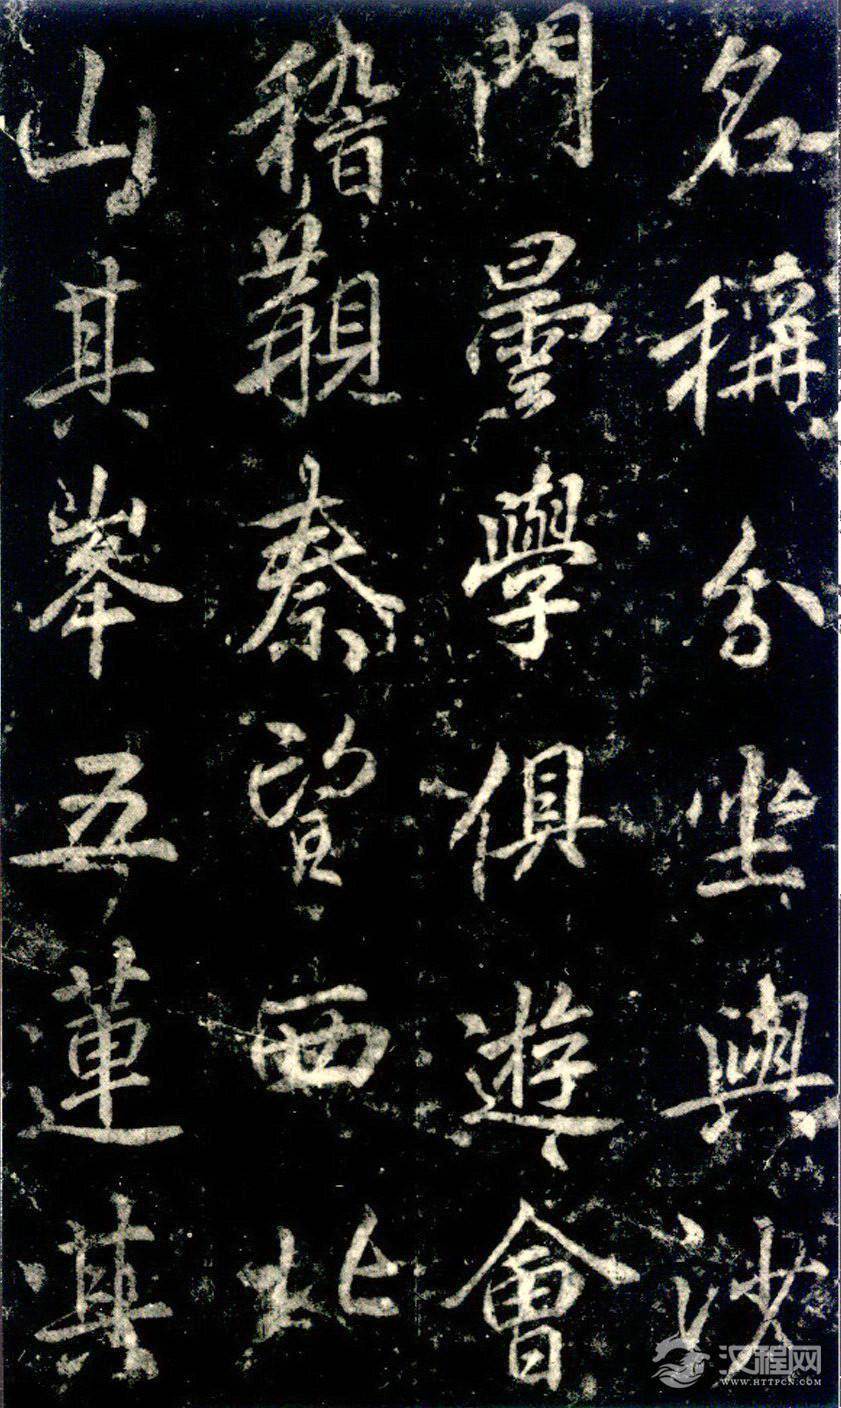 名稱分坐與沙
門曇學俱遊會
稽覯秦望西北
山其峯五蓮其
汉程网
WWW.HTTPCN.COM